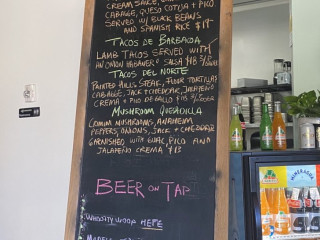 CREAM SAUCE, ONION,
CABAGE, QUESO COTIJA + PICO
SERVED W/ BLACK BEANS
AND SPANISH RICE $19
TACOS DE BARBACOA
LAMB TACOS SERVED WITH
AN ONION HABANERO SALSA $18
TACOS DEL NORTE
PAINTED HILLS STEAK, FLOUR TORTILLAS
CABBAGE, JACK + CHEDDAR, JALAPEÑO
CREMA + PICO DE GALLO $15
MUSHROOM QUESADILLA
CRIMINI MUSHROOMS, ANAHEIM
PEPPERS, ONIONS, JACK + CHEDDAR
GARNISHED WITH GUAC, PICO AND
JALAPEÑO CREMA $13
BEER ON TAP
HEFE